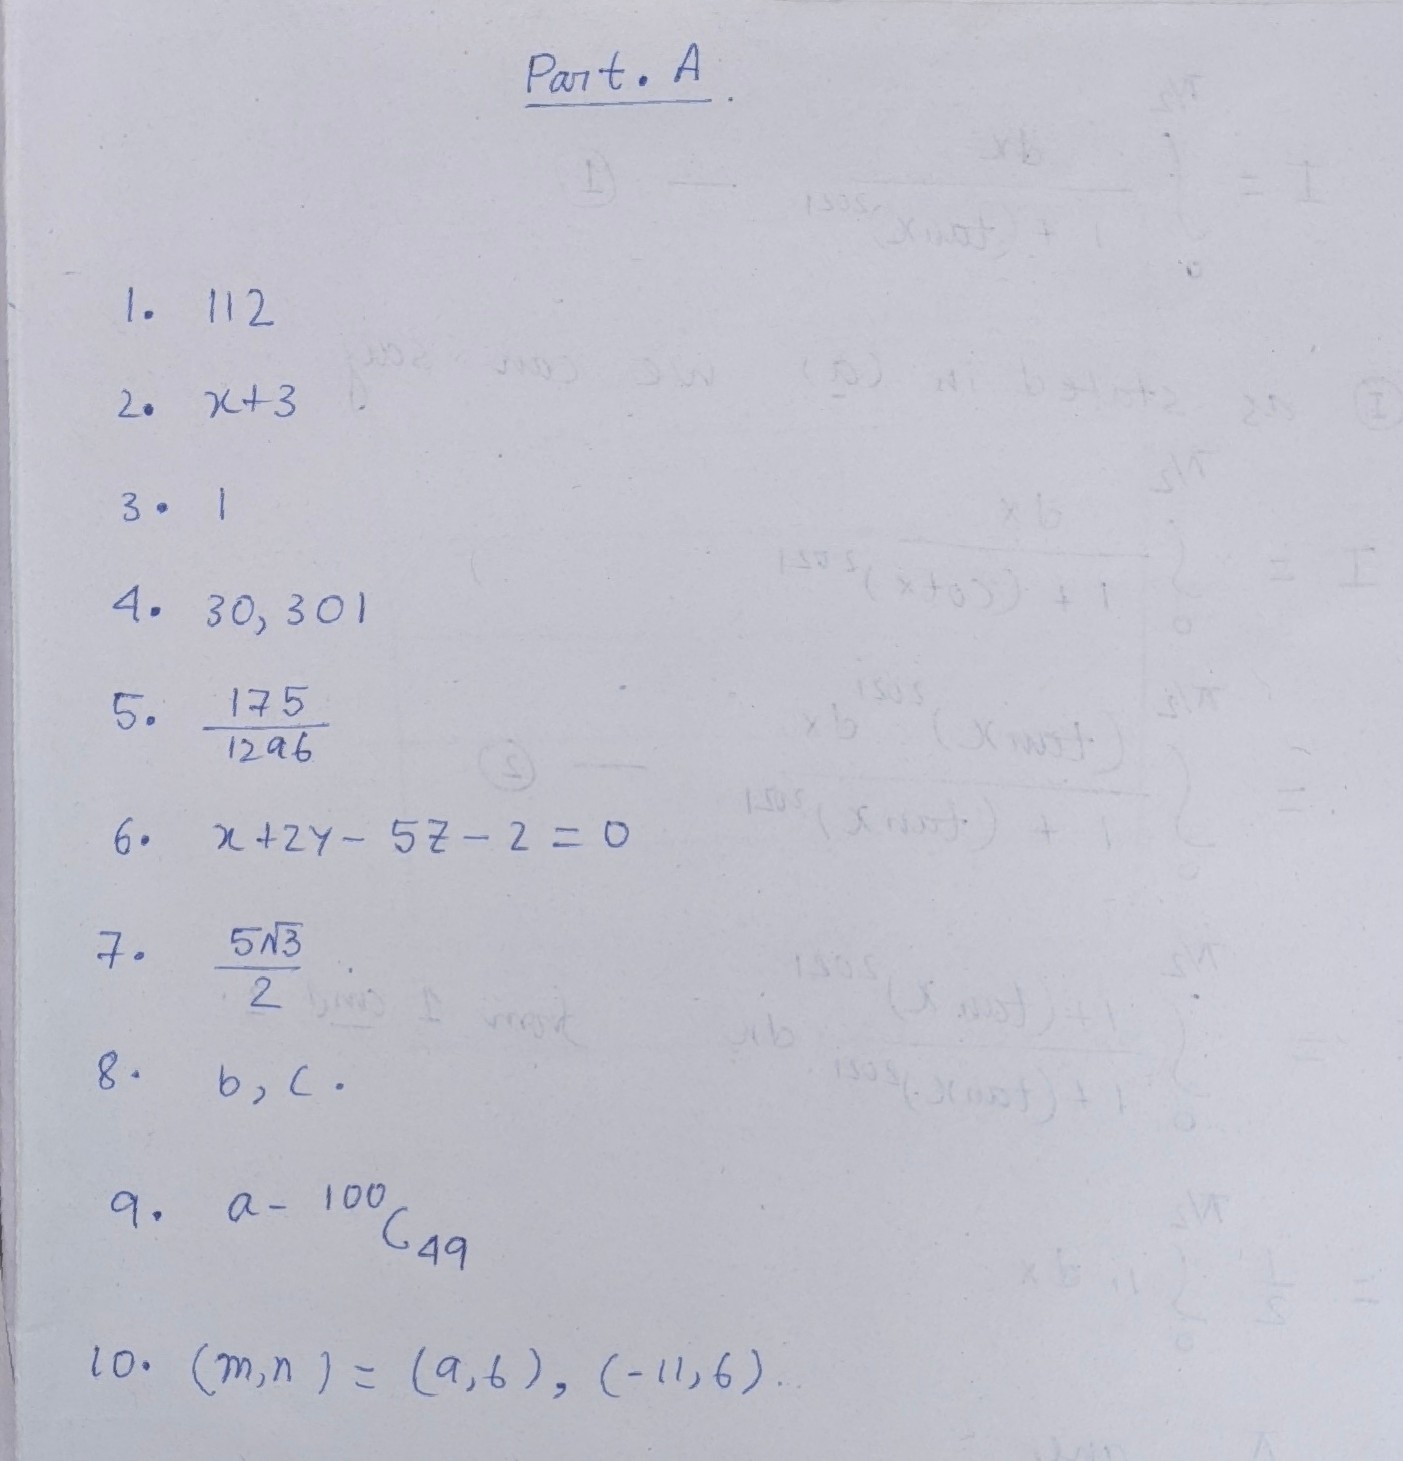 Part. A.
1. 112
2. x+3
3. 1
4. 30, 301
5. 175/1296
6. x+2y-5z-2=0
7. 5√3/2
8. b, c.
9. a- ¹⁰⁰C₄₉
10. (m,n) = (9,6), (-11,6)..